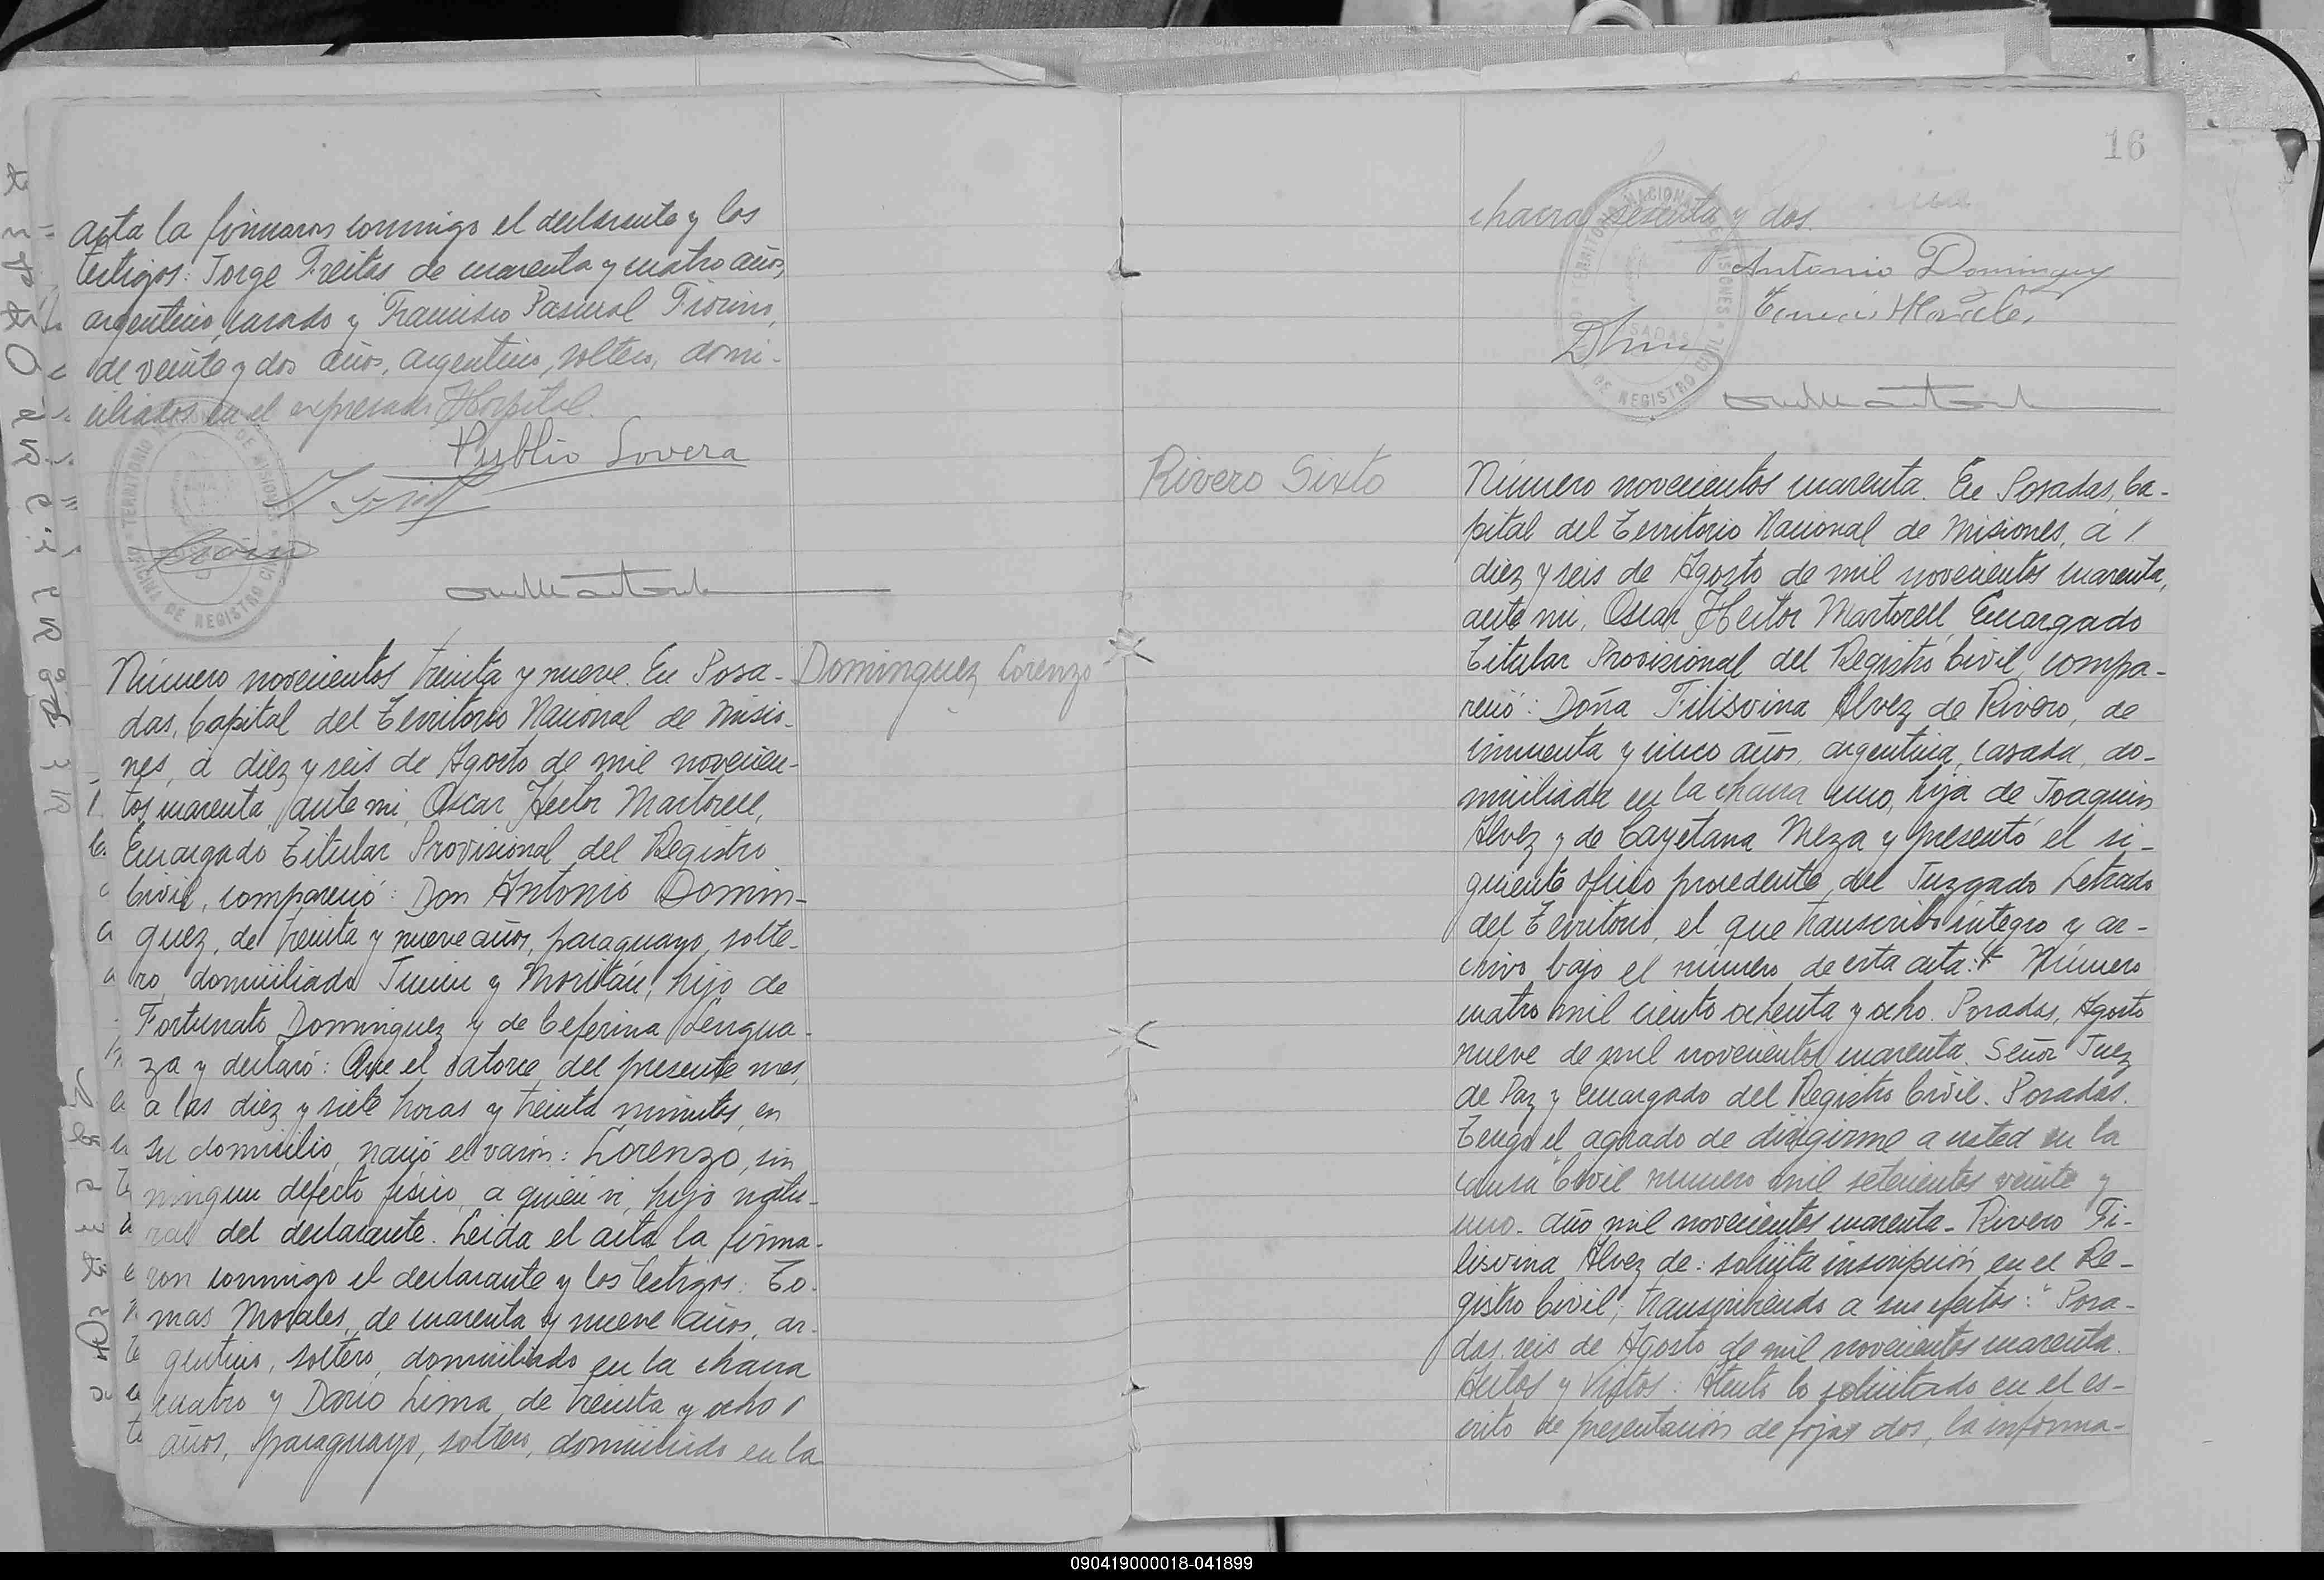 acta la firmaron conmigo el declarante y los
testigos: Jorge Freitas de cuarenta y cuatro años,
argentino, casado y Francisco Pascual Fiorino,
de veinte y dos años, argentino, soltero, domi-
ciliados en el expresado Hospital.
Publio Lovera
Número novecientos treinta y nueve. En Posa-
das, Capital del Territorio Nacional de Misio-
nes, á diez y seis de Agosto de mil novecien-
tos cuarenta, ante mi, Oscar Hector Martorell,
Encargado Titular Provisional del Registro
Civil, compareció: Don Antonio Domin-
guez, de treinta y nueve años, paraguayo, solte-
ro, domiciliado Junin y Moritán, hijo de
Fortunato Dominguez y de Ceferina Lengua-
za y declaró: Que el catorce del presente mes,
a las diez y siete horas y treinta minutos, en
su domicilio, nació el varón: Lorenzo, sin
ningun defecto fisico, a quien vi, hijo natu-
ral del declarante. Leida el acta la firma-
ron conmigo el declarante y los testigos: To-
mas Morales, de cuarenta y nueve años, ar-
gentino, soltero, domiciliado en la chacra
cuatro y Dario Lima, de treinta y ocho
años, paraguayo, soltero, domiciliado en la
Dominguez Lorenzo
16
chacra sesenta y dos.
Antonio Dominguez
Tomas Morales
Rivero Sixto
Número novecientos cuarenta. En Posadas, Ca-
pital del Territorio Nacional de Misiones, á
diez y seis de Agosto de mil novecientos cuarenta,
ante mi, Oscar Hector Martorell, Encargado
Titular Provisional del Registro Civil, compa-
reció: Doña Filisvina Alvez de Rivero, de
cincuenta y cinco años, argentina, casada, do-
miciliada en la chacra uno, hija de Joaquin
Alvez y de Cayetana Meza y presentó el si-
guiente oficio procedente del Juzgado Letrado
del Territorio, el que transcribo integro y ar-
chivo bajo el número de esta acta: "Número
cuatro mil ciento ochenta y ocho. Posadas, Agosto
nueve de mil novecientos cuarenta. Señor Juez
de Paz y Encargado del Registro Civil. Posadas.
Tengo el agrado de dirigirme a usted en la
causa "Civil numero mil setecientos veinte y
uno. año mil novecientos cuarenta. Rivero Fi-
lisvina Alvez de: solicita inscripción en el Re-
gistro Civil, transcribiendo a sus efectos: "Posa-
das, seis de Agosto de mil novecientos cuarenta.
Autos y Vistos: Atento lo solicitado en el es-
crito de presentación de fojas dos, la informa-
090419000018-041899